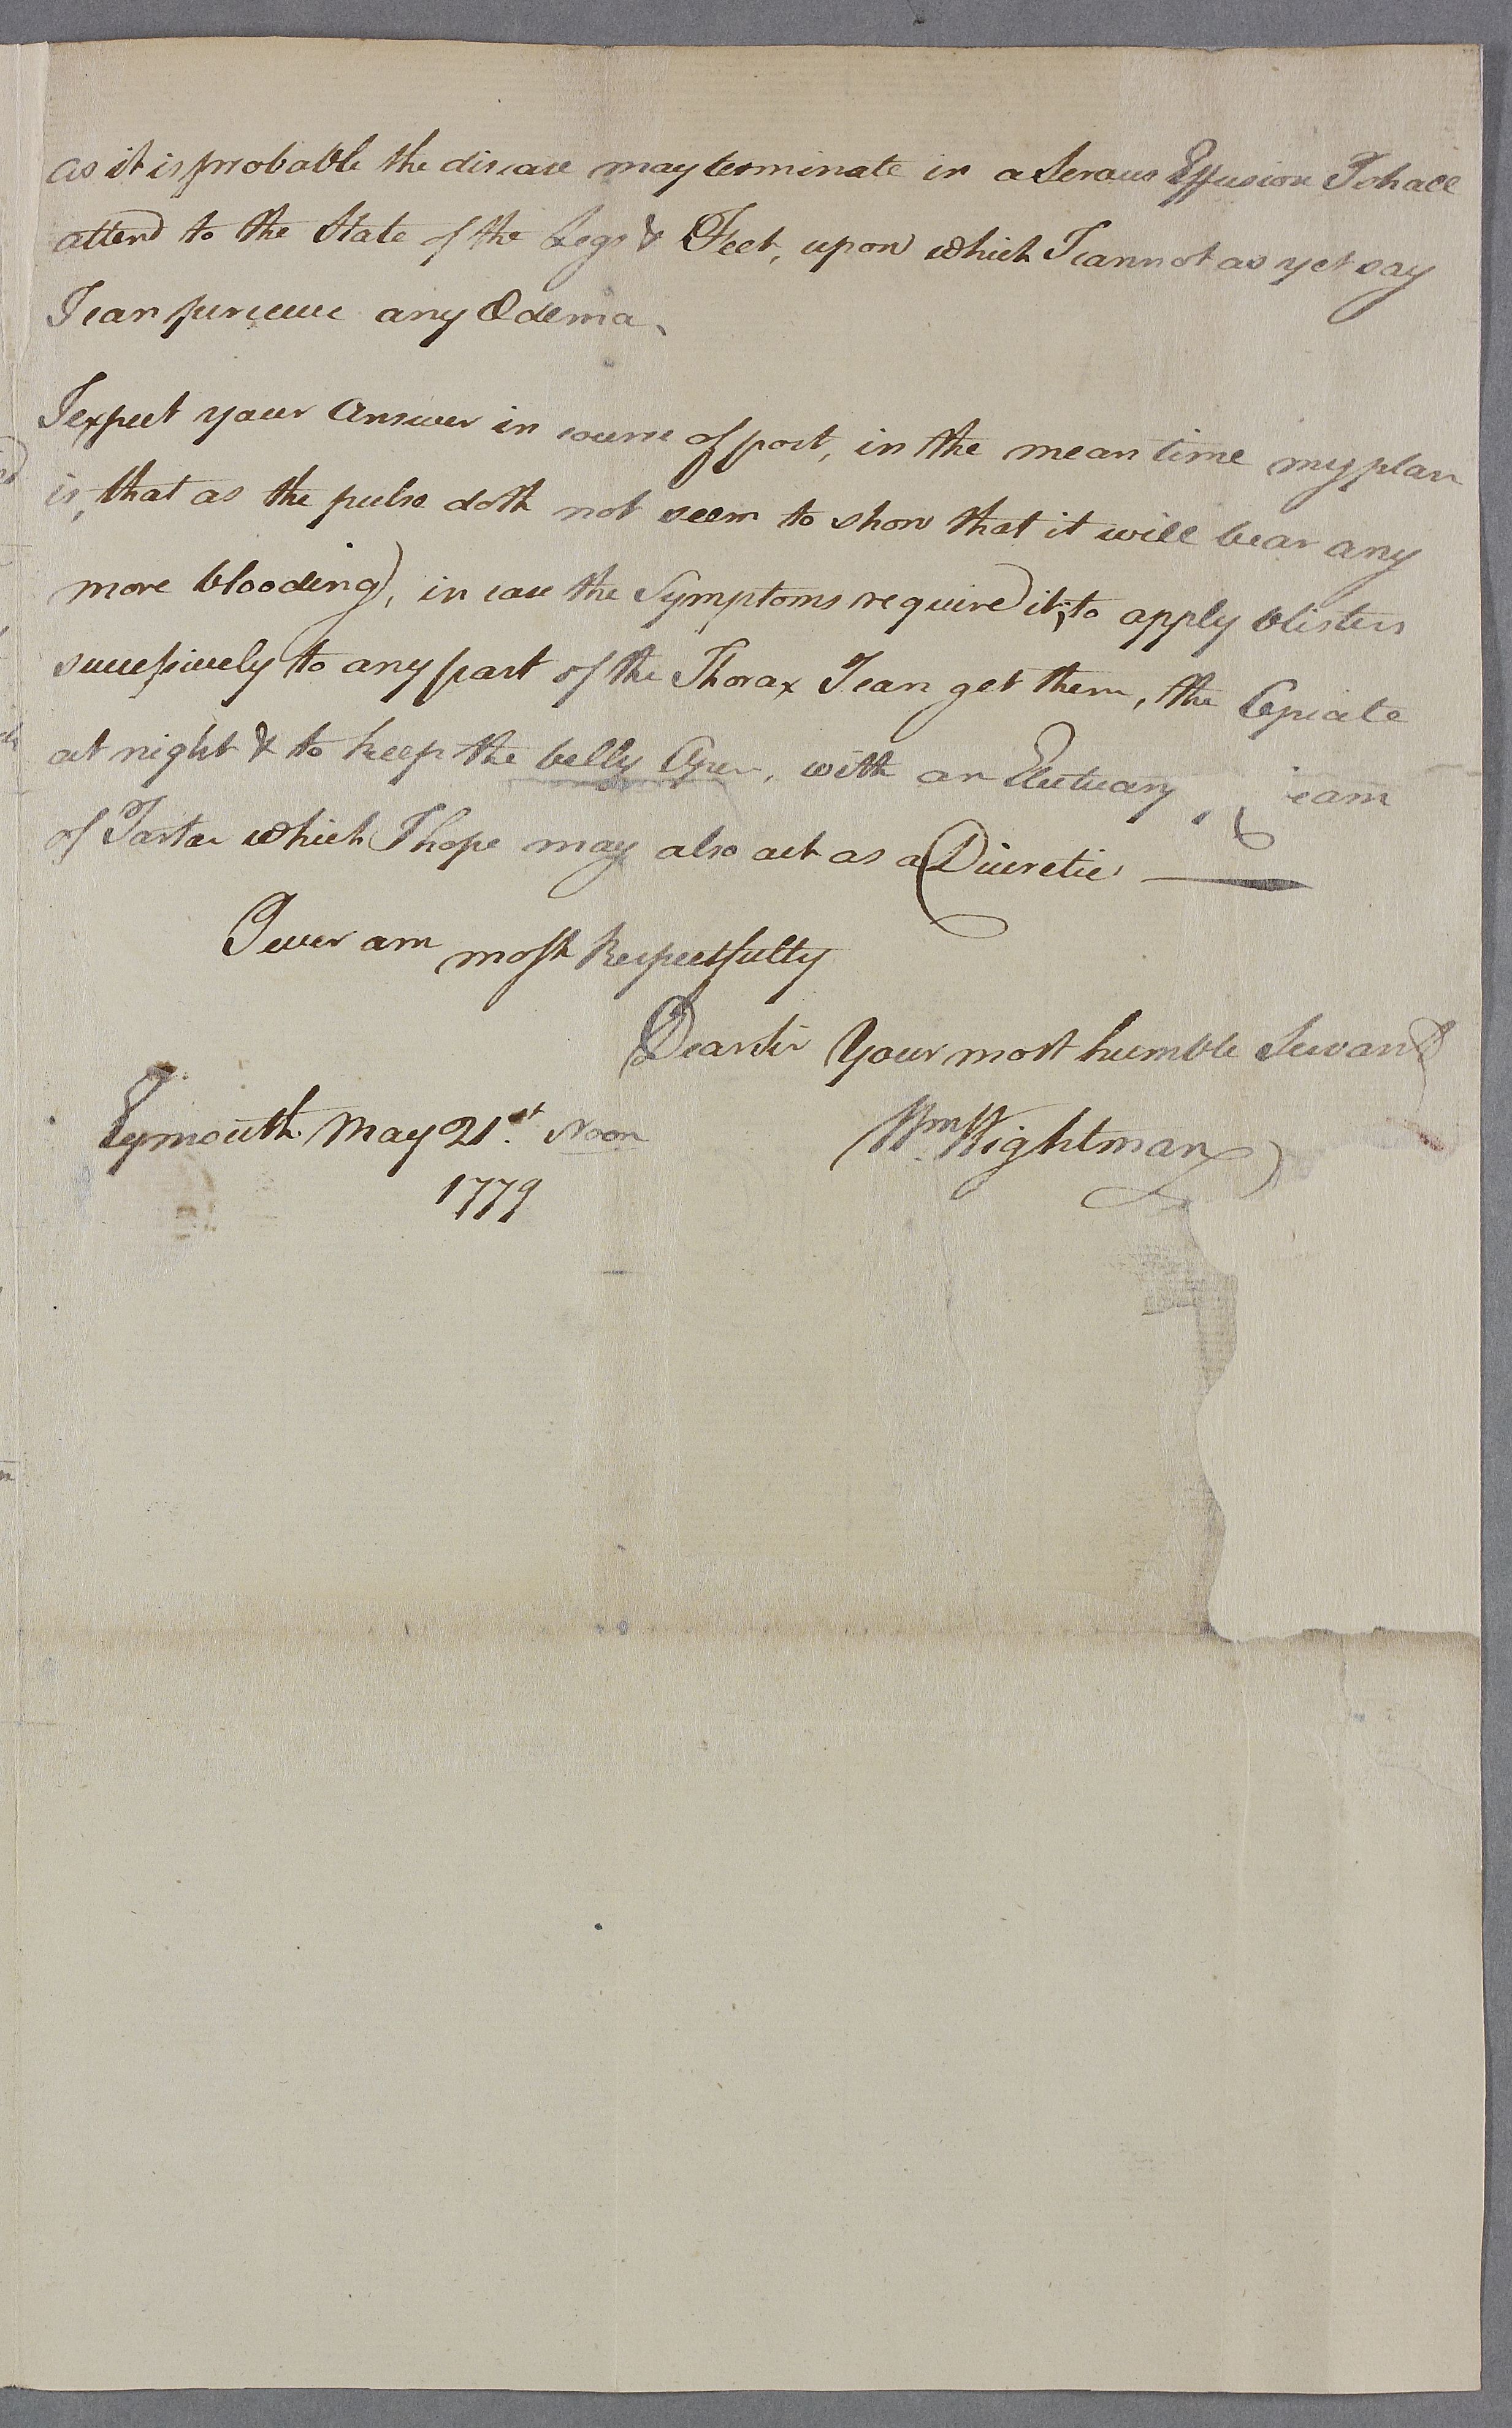 as it is probable the disease may terminate in a Serous Effusion I shall
attend to the State of the Legs & Feet, upon which I cannot as yet say
I can perceive any Odema.
I expect your Answer in course of post, in the mean time my plan
is, that as the pulse doth not seem to show that it will bear any
more blooding, in case the Symptoms require it, to apply blisters
successively to any part of the Thorax I can get them, the Opiate
at night & to keep the belly Open, with an Electuary,
of Tartar which I hope may also act as a Diuretic
I ever am most Respectfully
Dear Sir Your most humble Servant
Eymouth May 21st. Noon Wm. Wightman
1779